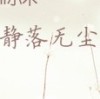 静落无尘